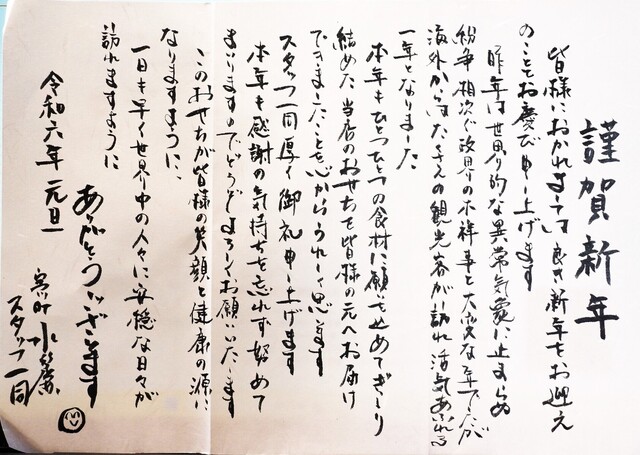 謹賀新年
皆様におかれましては良き新年をお迎え
のこととお慶び申し上げます
昨年は世界的な異常気象に止まらぬ
紛争相次ぐ政界の不祥事と大変な年でしたが
海外からはたくさんの観光客が訪れ活気あふれる
一年となりました
本年もひとつひとつの食材に願いをこめてぎっしり
結めた当店のおせちを皆様の元へお届け
できましたことを心からうれしく思います
スタッフ一同厚く御礼申し上げます
本年も感謝の気持ちを忘れず努めて
まいりますのでどうぞよろしくお願いいたします
このおせちが皆様の笑顔と健康の源に
なりますように、
一日も早く世界中の人々に安穏な日々が
訪れますように
ありがとうございます
令和六年元旦
スタッフ一同